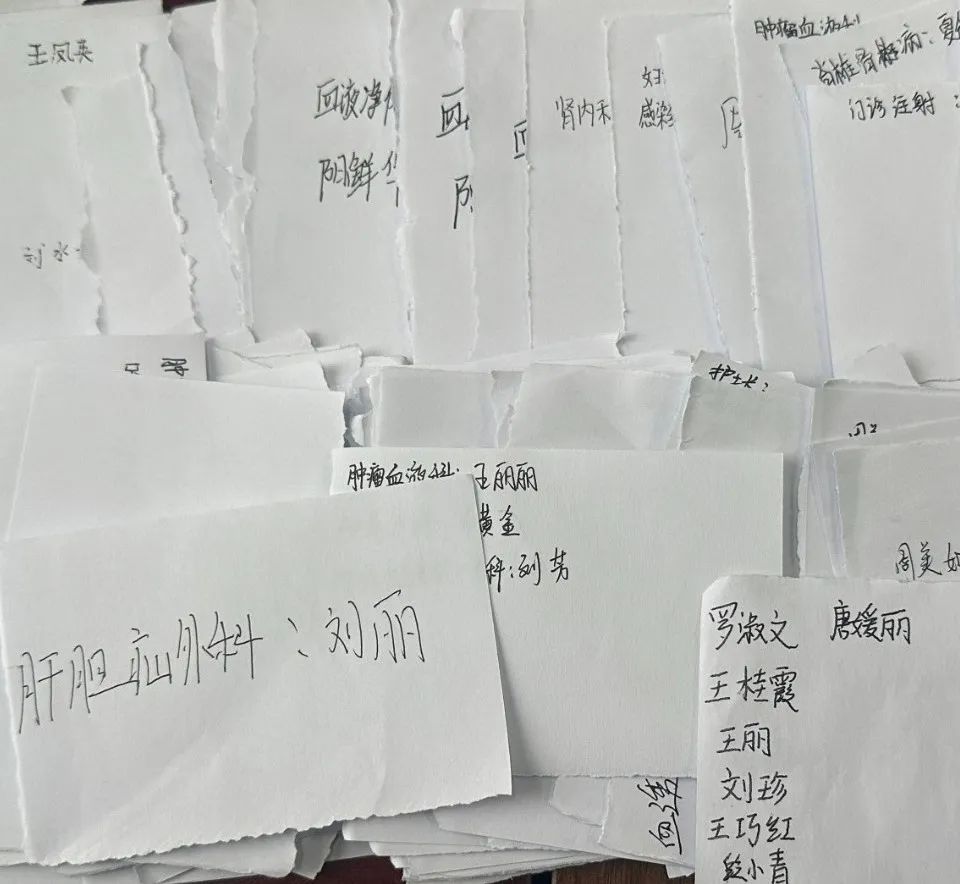 王凤英
刘水
血液净
阴鲜华
肾内科
妇
感染
肿瘤血液科
脊椎脊髓病:夏
门诊注射:
护士长:
肿瘤血液科:王丽丽
黄金
科:刘芳
周美如
肝胆疝外科:刘丽
罗淑文 唐媛丽
王桂霞
王丽
刘珍
王巧红
段小青